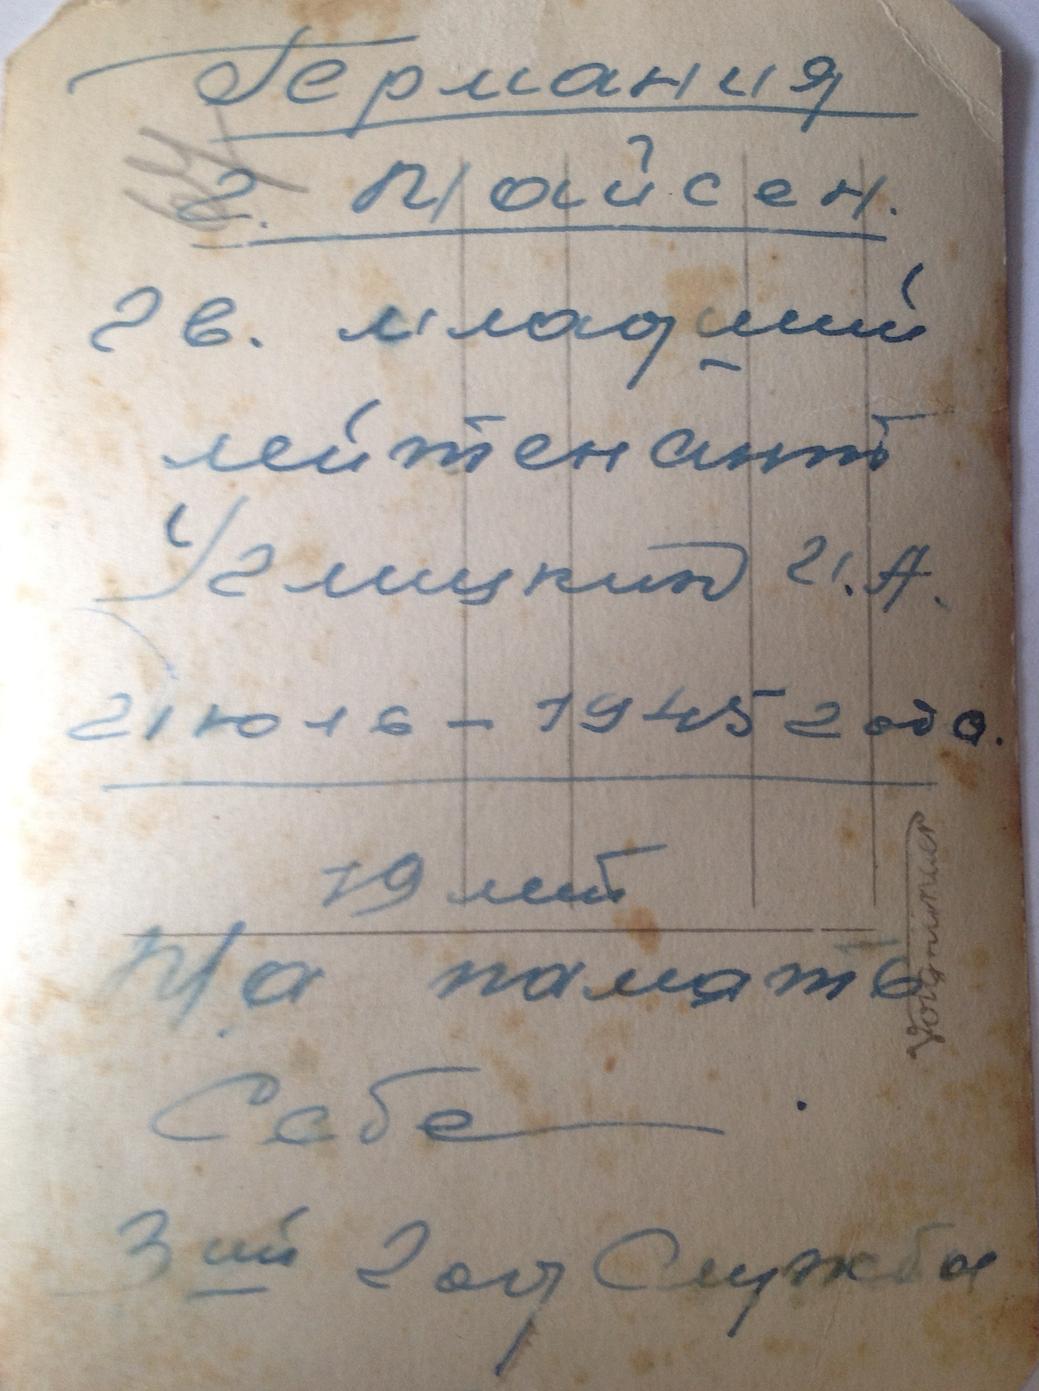 Германия
г. Майсен.
гв. младший
лейтенант
Углицкий Г. А.
21 июля - 1945 года.
19 лет
На памать
Себе
3ий год Служба